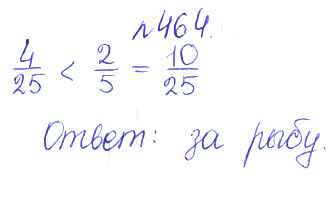 №464.
4/25 < 2/5 = 10/25
Ответ: за рыбу.